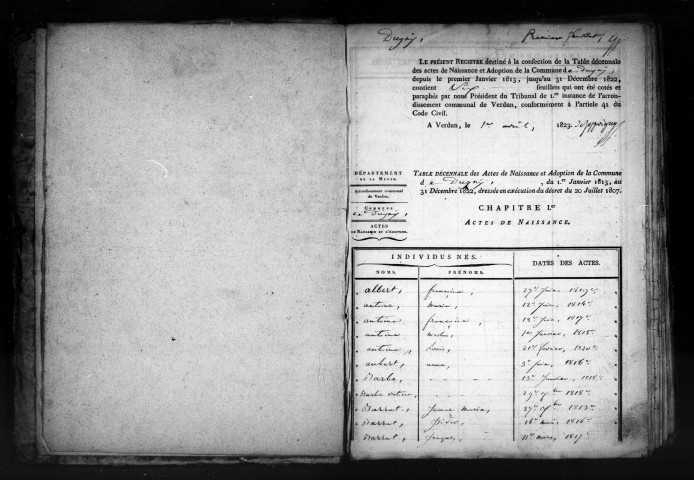 Dugny,
Premier feuillet,
LE PRÉSENT REGISTRE destiné à la confection de la Table décennale
des actes de Naissance et Adoption de la Commune de Dugny,
depuis le premier Janvier 1813, jusqu'au 31 Décembre 1822,
contient Six feuillets qui ont été cotés et
paraphés par nous Président du Tribunal de 1.re instance de l'arron-
dissement communal de Verdun, conformément à l'article 41 du
Code Civil.
A Verdun, le 1er avril, 1823.
DÉPARTEMENT
DE LA MEUSE.
Arrondissement communal
de Verdun.
COMMUNE
de Dugny,
ACTES
DE NAISSANCE ET D'ADOPTION.
TABLE DÉCENNALE des Actes de Naissance et Adoption de la Commune
de Dugny, , du 1.er Janvier 1813, au
31 Décembre 1822, dressée en exécution du décret du 20 Juillet 1807.
CHAPITRE I.er
ACTES DE NAISSANCE.
INDIVIDUS NÉS.
DATES DES ACTES.
NOMS.
PRÉNOMS.
albert, 27
antoine, Maria, 12 Juin, 1814
antoine françoise, 18 Juin, 1817
antoine 1er Janvier, 1818
antoine, Louis, 21 février, 1820
aubert, 3 1816
Barbe, 13 Janvier, 1818
Barbe 29 9bre 1818
Barrat, Jeanne Maria, 27 9bre 1813
Barrat, Isidor, 16 mai, 1816
Barrat, Jacques, 11 mars, 1817